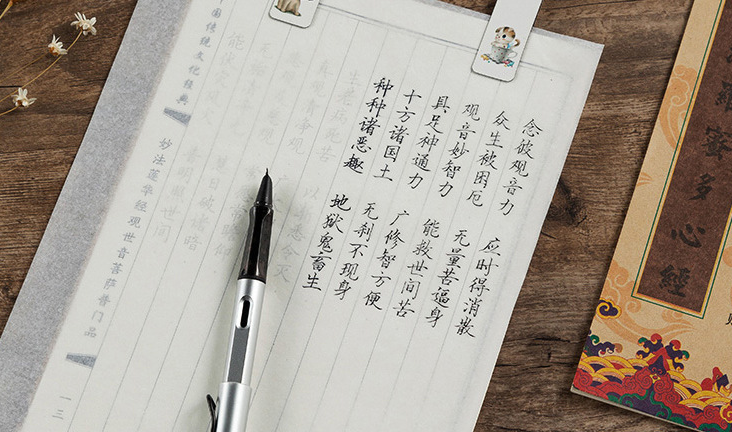 羅蜜多心經
念彼观音力 应时得消散
众生被困厄 无量苦逼身
观音妙智力 能救世间苦
具足神通力 广修智方便
十方诸国土 无刹不现身
种种诸恶趣 地狱鬼畜生
生老病死苦
国传统文化经典
妙法莲华经观世音菩萨普门品
一三